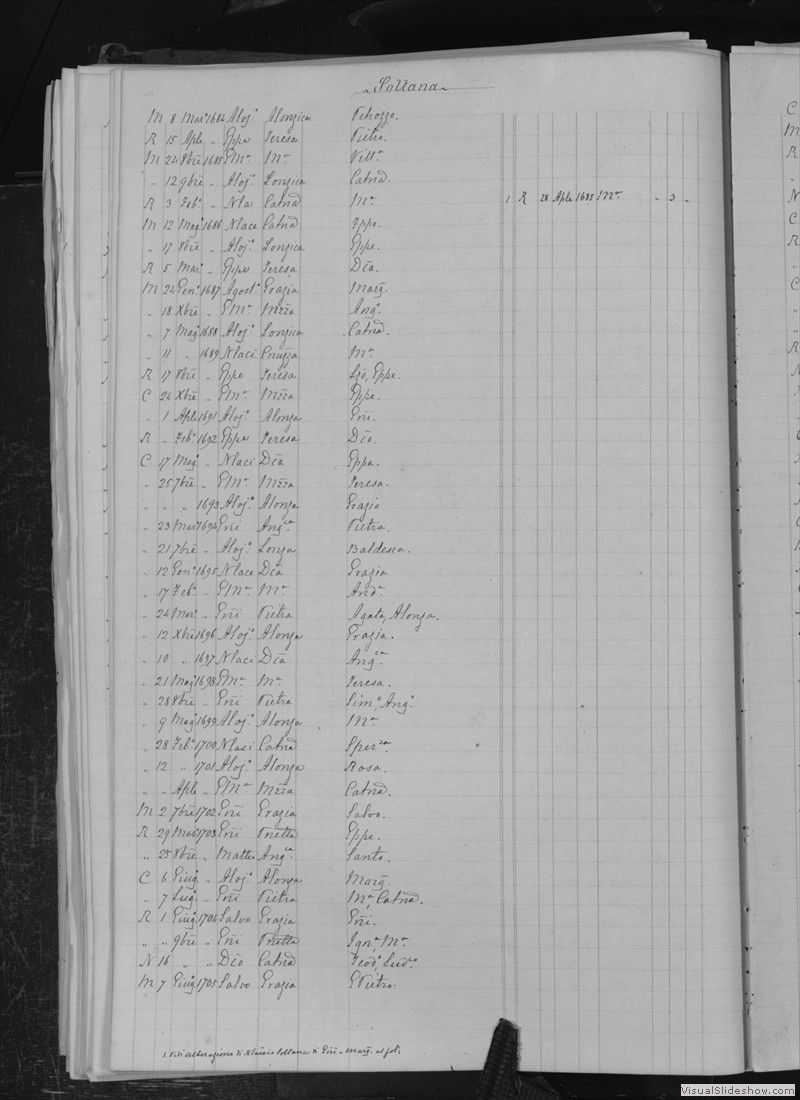 Soltana
M 8 Mar° 1684 Aloj° Alonzica Petrozza.
R 15 Aple " Eppe Teresa Pietro.
M 24 8bre 1685 EMa Ma Vitta
" 12 9bre " Aloj° Lonzica Catnd.
R 3 Feb° " Nla Catnd Ma 1 R 28 Aple 1685 Ma " 3 "
M 12 Mag° 1686 Nlace Catnd Ippo.
" 17 8bre " Aloj° Lonzica Eppe.
R 5 Mar° " Eppe Teresa Dca.
M 24 Gen° 1687 Agost° Grazia Marg.
" 18 Xbre " EMa Mzza Ang°
" 7 Mag° 1688 Aloj° Lonzica Catnd.
" 11 " 1689 Nlaci Cnuzza Ma
R 17 8bre " Eppe Teresa Lzo, Eppe.
C 24 Xbre " EMa Mzza Eppe.
" 1 Aple 1691 Aloj° Alonza Erri.
R " Feb° 1692 Eppe Teresa Dco.
C 17 Mag° " Nlaci Dca Eppa.
" 25 7bre " EMa Mzza Teresa.
" " " 1693 Aloj° Alonza Grazio
" 23 Mar° 1694 Erri Angca Pietra.
" 21 7bre " Aloj° Lonza Baldesca.
" 12 Gen° 1695 Nlace Dca Grazia
" 17 Feb° " EMa Ma Anda
" 24 Mar° " Erri Pietra Agata, Alonza.
" 12 Xbre 1696 Aloj° Alonza Grazia.
" 10 " 1697 Nlaci Dca Angca
" 21 Mag° 1698 EMa Ma Teresa.
" 28 8bre " Erri Pietra Sime, Ang°
" 9 Mag° 1699 Aloj° Alonza Ma
" 28 Feb° 1700 Nlaci Catnd Sperza
" 12 " 1701 Aloj° Alonza Rosa.
" " Aple " EMa Mzza Catnd.
M 2 7bre 1702 Erri Grazia Salvo.
R 29 Mar° 1703 Erri Pnetta Eppe.
" 25 8bre " Matteo Angca Santo.
C 6 Giug° " Aloj° Alonza Marg.
" 7 Lug° " Erri Pietra Ma, Catnd.
R 1 Giug° 1704 Salvo Grazia Erri.
" " 9bre " Erri Pnetta Igna, Ma
N 16 " " Dco Catnd Teod°, Ludca
M 7 Giug° 1705 Salvo Grazia EPietro.
1. Vedi alberazione di Nlaccio Soltana di Erri e Marg. a fol:
C
M
R
"
N
C
R
"
C
"
"
R
VisualSlideshow.com